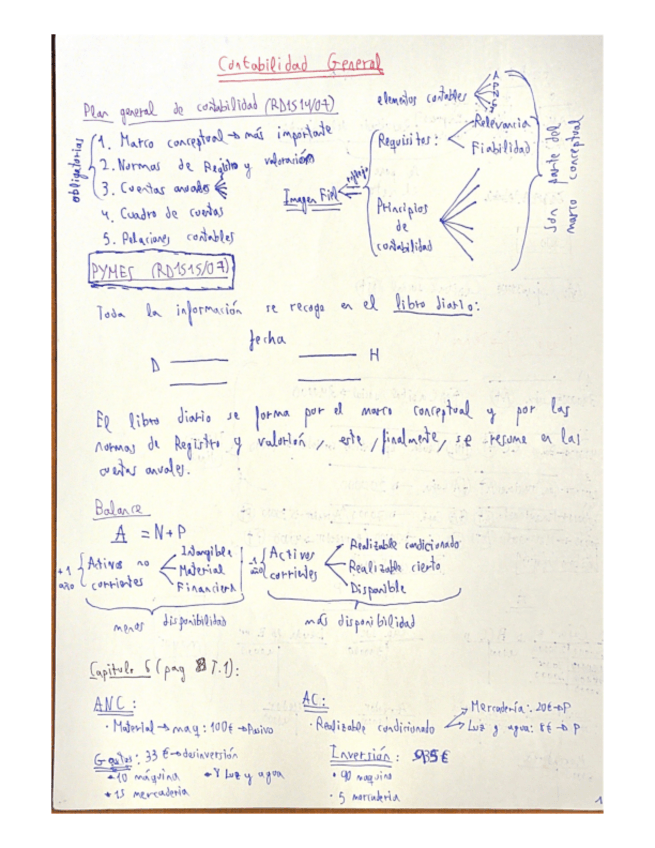 Contabilidad General
Plan general de contabilidad (RD1514/07)
obligatorias
1. Marco conceptual → más importante
2. Normas de Registro y valoración
3. Cuentas anuales
4. Cuadro de cuentas
5. Relaciones contables
PYMES (RD1515/07)
elementos contables
A
P
N
Requisitos:
Relevancia
Fiabilidad
Imagen Fiel
Principios
de
contabilidad
Son parte del
marco conceptual
Toda la información se recoge en el libro diario:
fecha
D H
El libro diario se forma por el marco conceptual y por las
normas de Registro y , este, finalmente, se resume en las
cuentas anuales.
Balance
A = N+P
+1
año
Activos no
corrientes
Intangible
Material
Financiera
menos disponibilidad
-1
año
Activos
corrientes
Realizable condicionado
Realizable cierto
Disponible
más disponibilidad
Capitulo 5 (pag 8 T.1):
ANC:
· Material → maq: 100€ → Pasivo
Gastos: 33 € → desinversión
10 máquina
15 mercaderia
8 Luz y agua
AC:
· Realizable condicionado
Mercadería: 20€ → P
Luz y agua: 8€ → P
Inversión: 95€
· 90 maquina
· 5 mercaderia
1